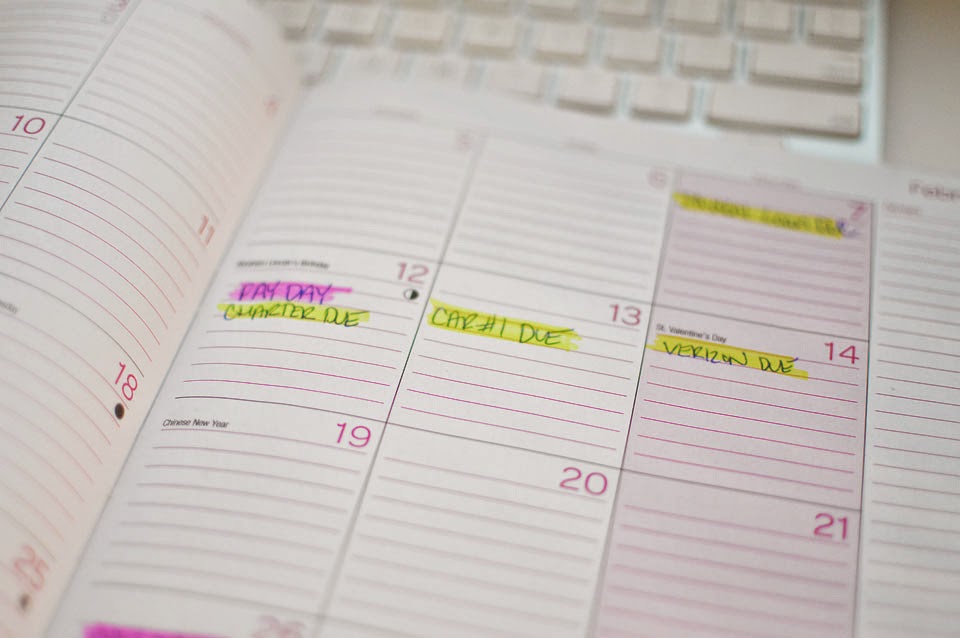 3
10
11
18
25
5
6
7
Febr
Abraham Lincoln's Birthday
12
PAY DAY
CHARTER DUE
13
CAR#1 DUE
St. Valentine's Day
14
VERIZON DUE
Chinese New Year
19
20
21
26